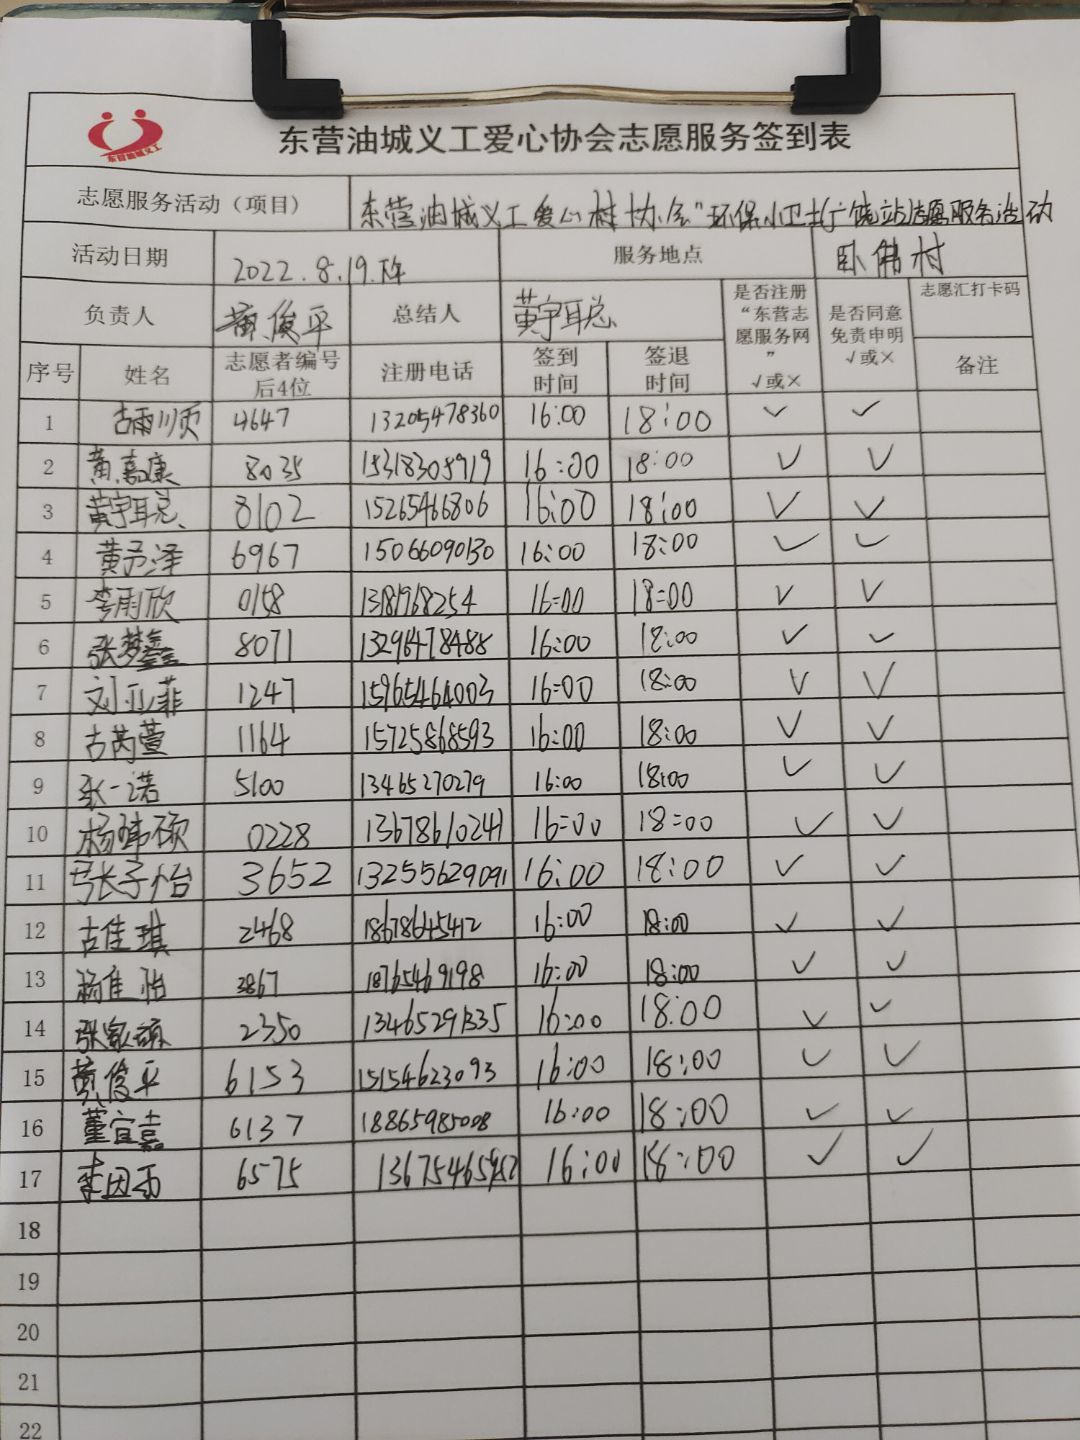 东营油城义工
东营油城义工爱心协会志愿服务签到表
志愿服务活动（项目） 东营油城义工爱心 协会"环保小卫士广饶站志愿服务活动
活动日期 2022.8.19.下午 服务地点 卧佛村
负责人 黄俊平 总结人 黄宇聪 是否注册“东营志愿服务网”√或× 是否同意免责申明√或× 志愿汇打卡码
序号 姓名 志愿者编号后4位 注册电话 签到时间 签退时间 备注
1 古雨顺 4647 13205478360 16:00 18:00 ✓ ✓
2 黄嘉康 8035 15318305919 16:00 18:00 ✓ ✓
3 黄宇聪 8102 15265466806 16:00 18:00 ✓ ✓
4 黄予泽 6967 15066090130 16:00 18:00 ✓ ✓
5 李雨欣 0158 16:00 18:00 ✓ ✓
6 张梦鑫 8071 13296478488 16:00 18:00 ✓ ✓
7 刘亚菲 1247 15965464003 16:00 18:00 ✓ ✓
8 古芮萱 1164 15725868593 16:00 18:00 ✓ ✓
9 张一诺 5100 13465270279 16:00 18:00 ✓ ✓
10 杨 硕 0228 13678610241 16:00 18:00 ✓ ✓
11 张子怡 3652 13255629091 16:00 18:00 ✓ ✓
12 古佳琪 2468 18678645412 16:00 18:00 ✓ ✓
13 杨佳怡 3867 18765469198 16:00 18:00 ✓ ✓
14 张家 2350 13465291335 16:00 18:00 ✓ ✓
15 黄俊平 6153 15154623093 16:00 18:00 ✓ ✓
16 董宜嘉 6137 18865985008 16:00 18:00 ✓ ✓
17 李因雨 6575 16:00 18:00 ✓ ✓
18
19
20
21
22